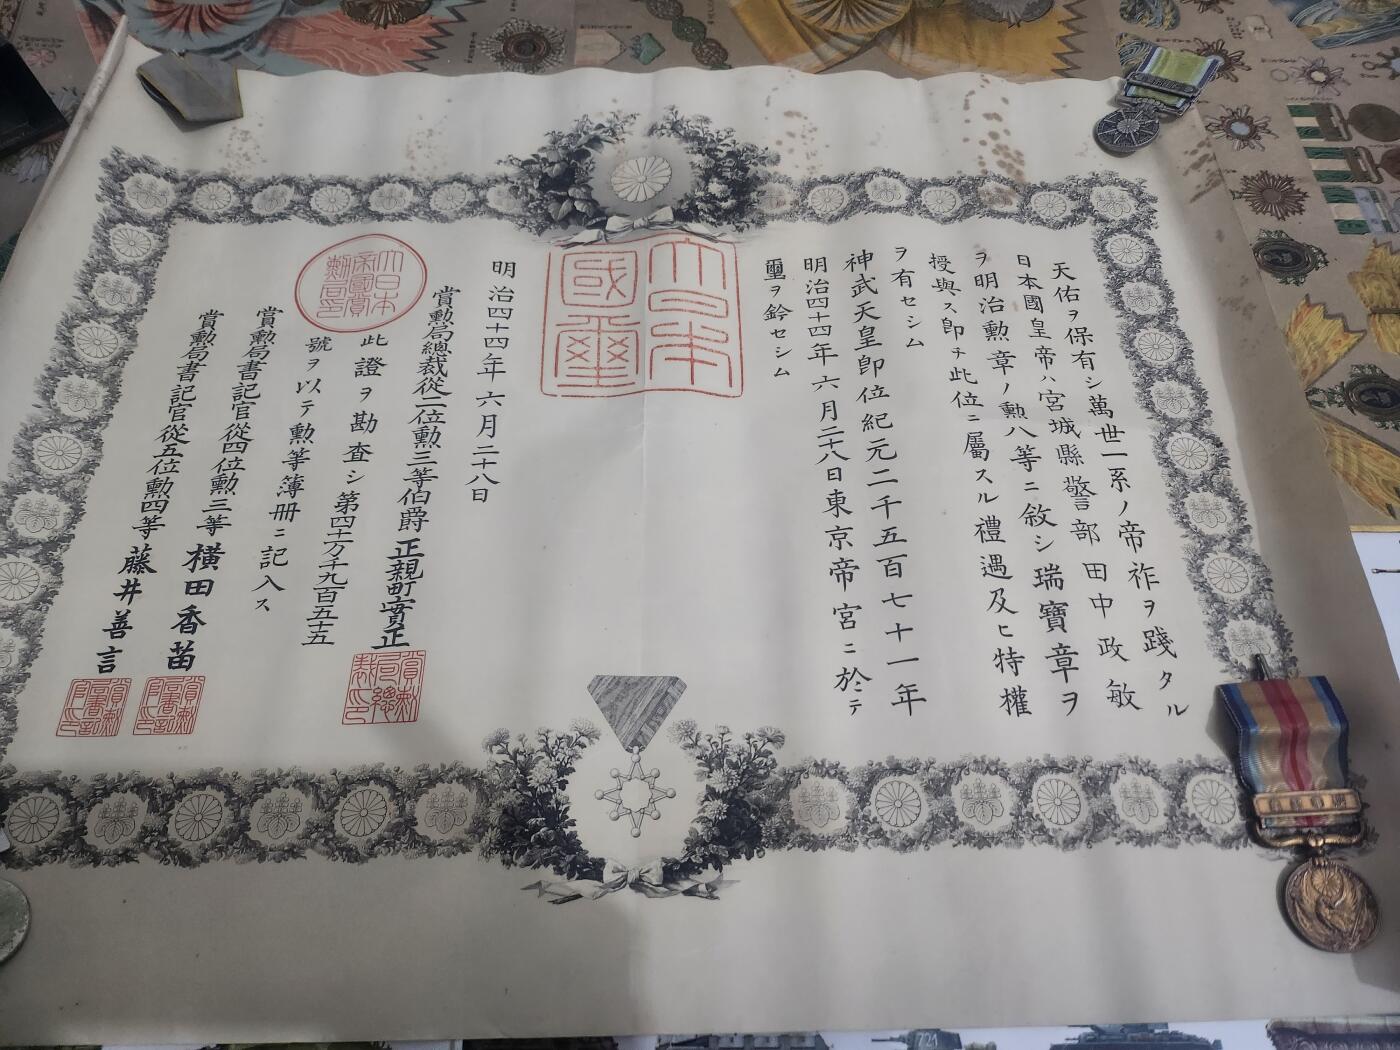 天佑ヲ保有シ萬世一系ノ帝祚ヲ踐タル
日本國皇帝ハ宮城縣警部田中政敏
ヲ明治勲章ノ勲八等ニ敘シ瑞寶章ヲ
授與ス即チ此位ニ屬スル禮遇及ヒ特權
ヲ有セシム
神武天皇即位紀元二千五百七十一年
明治四十四年六月二十八日東京帝宮ニ於テ
璽ヲ鈐セシム
大日本
國璽
明治四十四年六月二十八日
賞勲局總裁從二位勲三等伯爵正親町實正
賞勲局總裁印
大日本帝國賞勲局印
此證ヲ勘査シ第四十万千九百五十五
號ヲ以テ勲等簿册ニ記入ス
賞勲局書記官從四位勲三等横田香苗
賞勲局書記官從五位勲四等藤井善言
721